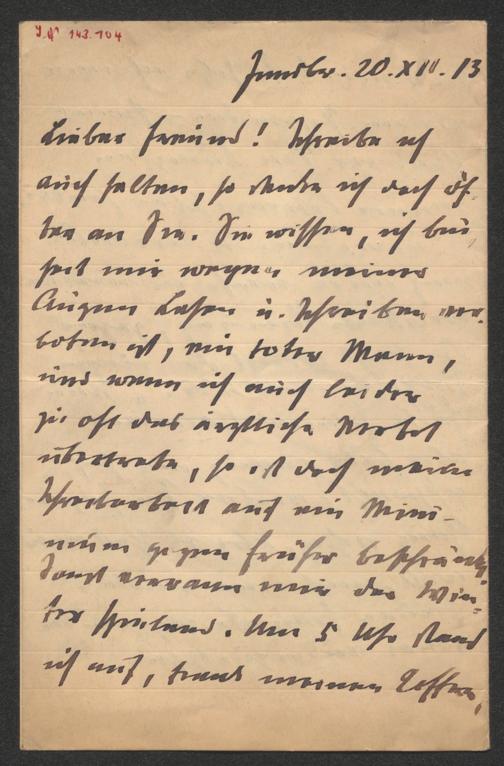 I. N. 143.104
Innsbr. 20. XII. 13
Lieber Freund! Schreibe ich
auch selten, so denke ich doch öf-
ter an Sie. Sie wissen, ich bin
seit mir wegen meiner
Augen Lesen u. Schreiben ver-
boten ist, ein toter Mann,
und wenn ich auch leider
zu oft das ärztliche Verbot
übertrete, so ist doch meine
Schreibarbeit auf ein Mini-
mum gegen früher beschränkt.
Sonst verrann mir der Win-
ter spielend. Um 5 Uhr stand
ich auf, trank meinen Kaffee,